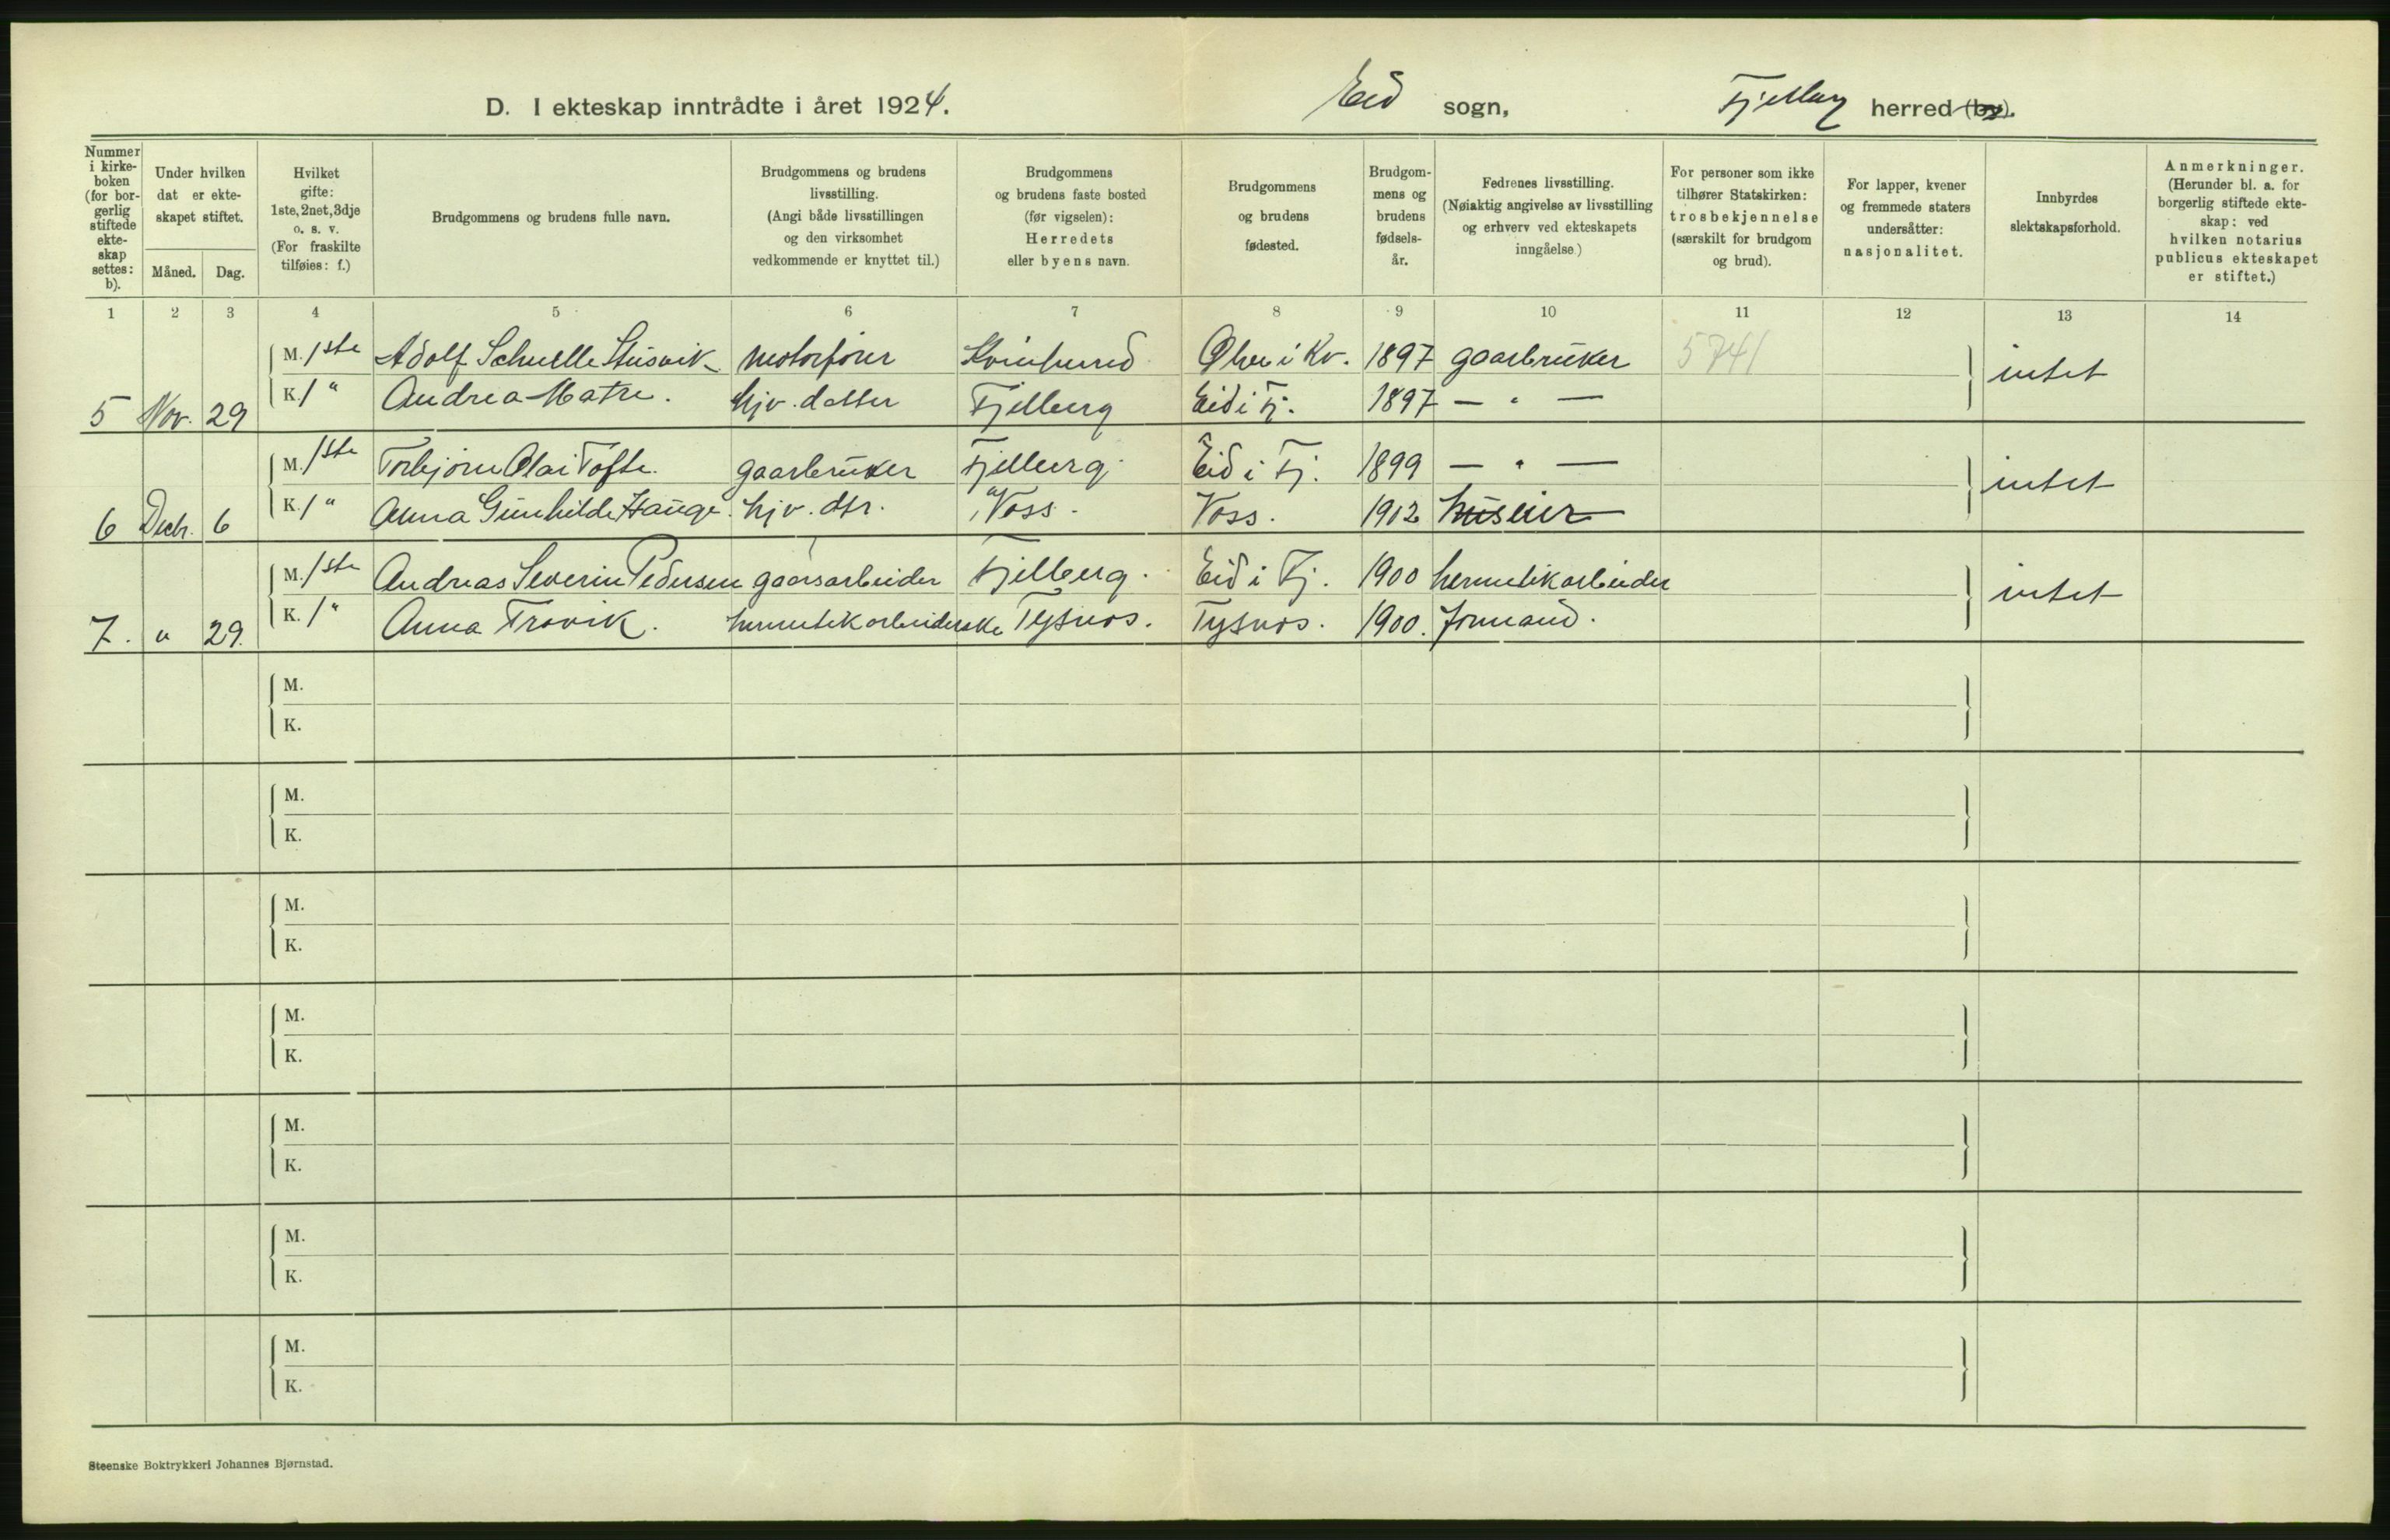 D. I ekteskap inntrådte i året 1924.
Eid sogn, Fjelberg herred (by).
Nummer i kirkeboken (for borgerlig stiftede ekteskap settes: b).
Under hvilken dat er ekteskapet stiftet.
Måned. Dag.
Hvilket gifte: 1ste, 2net, 3dje o. s. v. (For fraskilte tilføies: f.)
Brudgommens og brudens fulle navn.
Brudgommens og brudens livsstilling. (Angi både livsstillingen og den virksomhet vedkommende er knyttet til.)
Brudgommens og brudens faste bosted (før vigselen): Herredets eller byens navn.
Brudgommens og brudens fødested.
Brudgommens og brudens fødselsår.
Fedrenes livsstilling. (Nøiaktig angivelse av livsstilling og erhverv ved ekteskapets inngåelse)
For personer som ikke tilhører Statskirken: trosbekjennelse (særskilt for brudgom og brud).
For lapper, kvener og fremmede staters undersåtter: nasjonalitet.
Innbyrdes slektskapsforhold.
Anmerkninger. (Herunder bl. a. for borgerlig stiftede ekteskap: ved hvilken notarius publicus ekteskapet er stiftet.)
1 2 3 4 5 6 7 8 9 10 11 12 13 14
M. 1ste Adolf Schnelle motorfører Kvinherred Ølve i Kv. 1897 gaarbruker 5741
5 Nov. 29 K. 1" Andrea Matre. hjv. datter Fjelberg Eid i Fj. 1897 — " — intet
M. 1ste Torbjørn Olai Tofte. gaarbruker Fjelberg Eid i Fj. 1899 — " —
6 Decbr. 6 K. 1" Anna Gunhilde Hauge. hjv. dtr. Voss. Voss. 1902 huseier intet
M. 1ste Andreas Severin Pedersen gaarsarbeider Fjelberg. Eid i Fj. 1900 hermetikarbeider
7. " 29. K. 1" Anna Trovik. hermetikarbeiderske Tysnos. Tysnos. 1900. formand. intet
M.
K.
M.
K.
M.
K.
M.
K.
M.
K.
M.
K.
M.
K.
Steenske Boktrykkeri Johannes Bjørnstad.